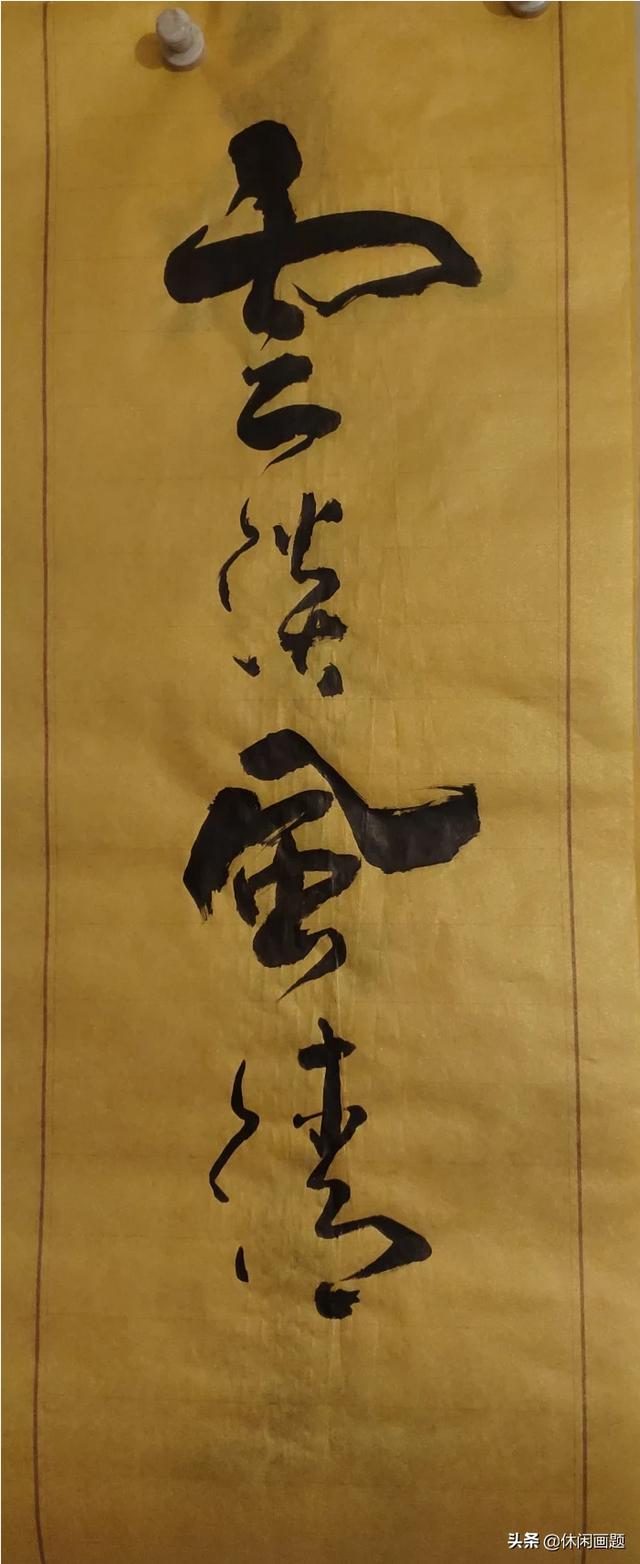 雲淡風清
头条 @休闲画题